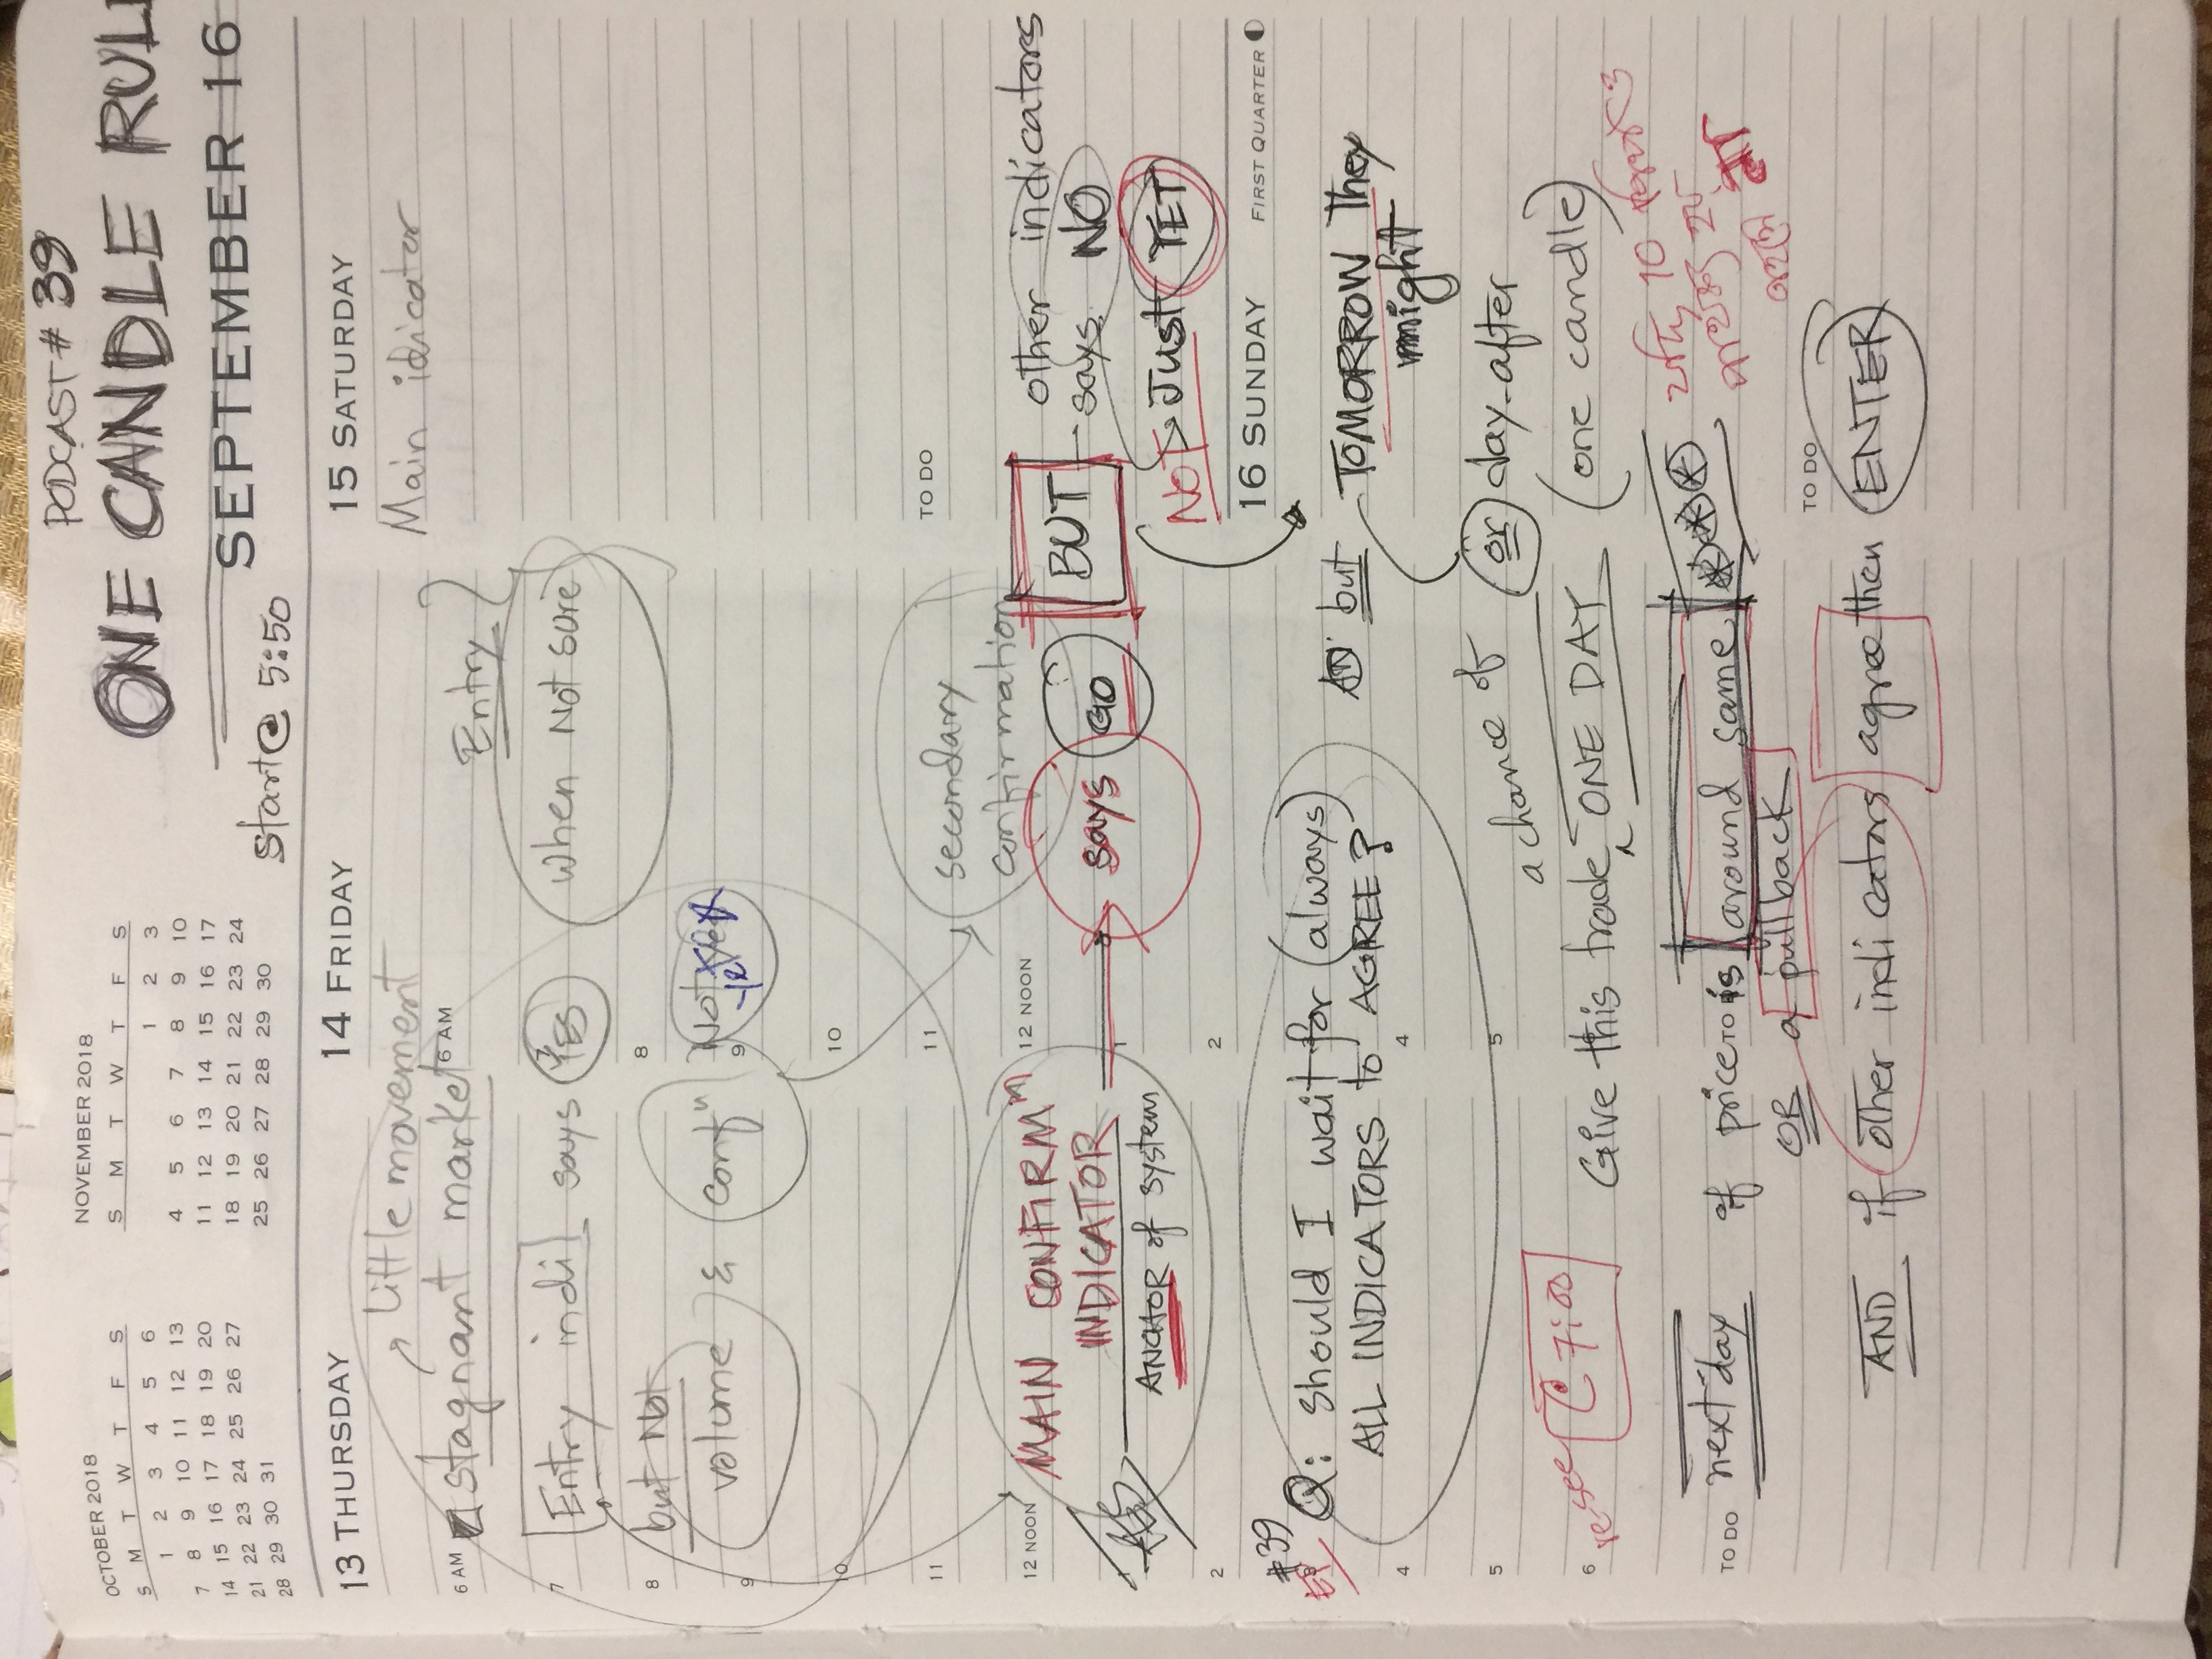 PODCAST # 39
ONE CANDLE RUL
OCTOBER 2018
S M T W T F S
1 2 3 4 5 6
7 8 9 10 11 12 13
14 15 16 17 18 19 20
21 22 23 24 25 26 27
28 29 30 31
NOVEMBER 2018
S M T W T F S
1 2 3
4 5 6 7 8 9 10
11 12 13 14 15 16 17
18 19 20 21 22 23 24
25 26 27 28 29 30
SEPTEMBER 16
Start@ 5:50
13 THURSDAY
14 FRIDAY
15 SATURDAY
little movement
Main idicator
6 AM stagnant market
6 AM
Entry
7 Entry indi says YES
when Not sure
8 but Not
8
volume & confⁿ Not yet
9
9
10
10
11
11
TO DO
secondary
confirmation
12 NOON
12 NOON
MAIN CONFIRMⁿ
INDICATOR
says GO BUT other indicators
says NO
ANCHOR of system
1
NOT Just YET
2
2
16 SUNDAY FIRST QUARTER
#39
EP
Q: should I wait for (always)
ALL INDICATORS to AGREE?
but TOMORROW they
might
4
4
5
5
a chance of
or day-after
re-see @ 7:00
6
Give this trade ONE DAY (one candle)
যদি 10
TO DO next day if price TO DO is around same
না
OR a pullback
TO DO
AND if other indicators agree then ENTER